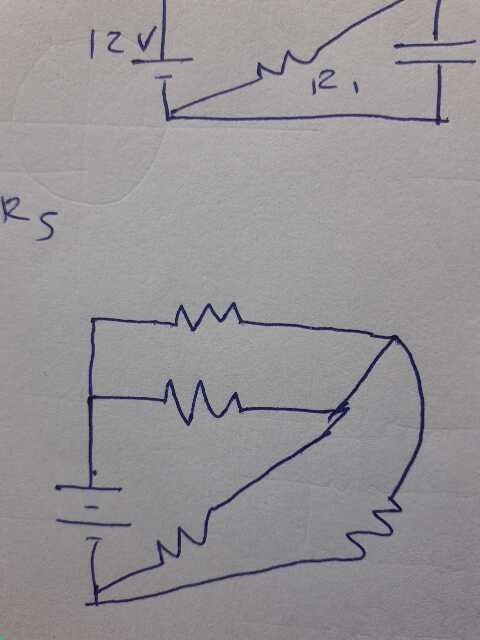 12V
R1
R5